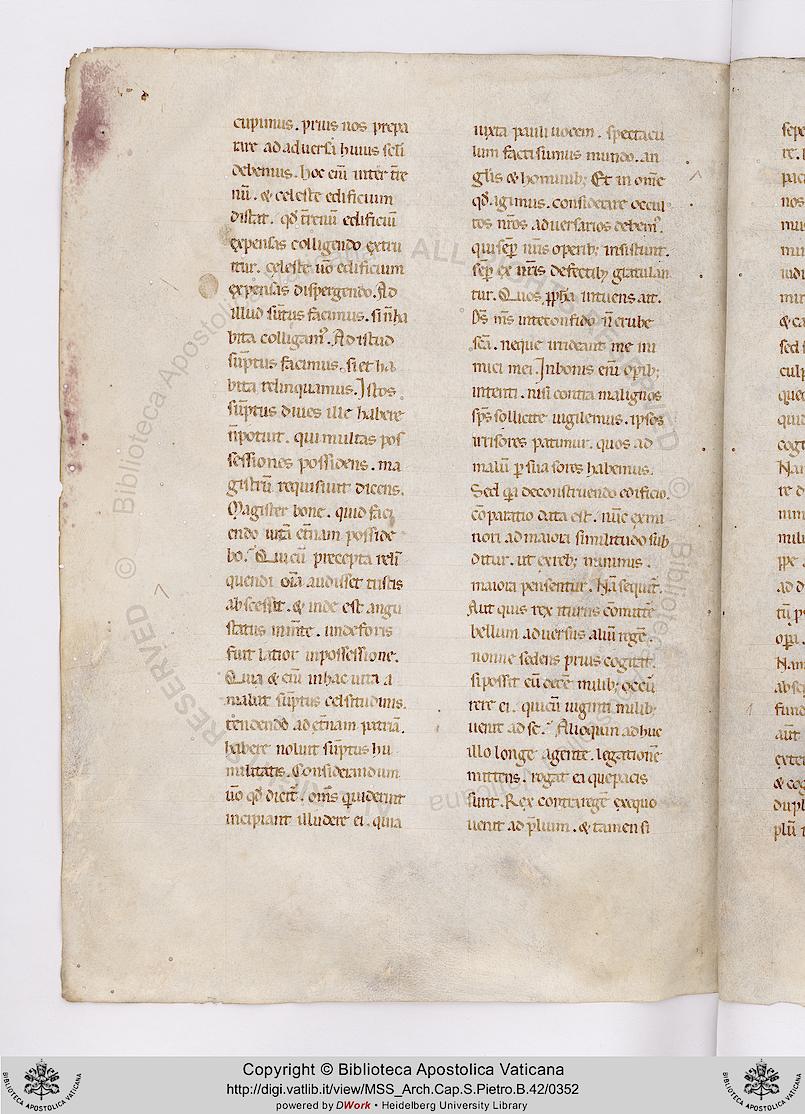 cupimus. prius nos prepa
rare ad aduersa huius scłi
debemus. hoc eni͂ inter t͂re
nu͂. & celeste edificium
distat. qd͂ t͂renu͂ edificiu͂
expensas colligendo extru
itur. celeste uo͂ edificium
expensas dispergendo. Ad
illud su͂ptus facimus. si n͂ ha
bita colligam᷒. Ad istud
su͂ptus facimus. si et ha
bita relinquamus. Istos
su͂ptus diues ille habere
n͂ potuit. qui multas pos
sessiones possidens. ma
gistru͂ requisiuit dicens.
Magister bone. quid faci
endo uita͂ et͂nam posside
bo. Qui cu͂ precepta reli͂
quendi oi͂a audisset tristis
abscessit. & inde est angu
status in m͂te. unde foris
fuit latior in possessione.
Quia & eni͂ in hac uita a
mabat su͂ptus celsitudinis.
tendendo ad et͂nam patria͂.
habere noluit su͂ptus hu
militatis. Considerandum
uo͂ qd͂ dicit͂. om͂s qui uiderint
incipiant illudere ei. quia
iuxta pauli uocem. spectacu
lum facti sumus mundo. an
glis & hominib; Et in om͂e
qd͂ agimus. considerare occul
tos nr͂os aduersarios debem᷒.
qui semp͂ nr͂is operib; insistunt.
semp͂ ex nr͂is defectib; gratulan
tur. Quos pp͂ha intuens ait.
Ds͂ m͂s in te confido n͂ erube
sca͂. neque irrideant me ini
mici mei. In bonis eni͂ opib;
intenti. nisi contra malignos
sps͂ sollicite uigilemus. ipsos
irrisores patimur. quos ad
malu͂ p͂suasores habemus.
Sed qa de construendo edificio.
co͂paratio data est. nu͂c ex mi
nori ad maiora similitudo sub
ditur. ut ex reb; minimis.
maiora pensentur. Na͂ sequit͂.
Aut quis rex iturus co͂mitte͂
bellum aduersus aliu͂ rege͂.
nonne sedens prius cogitat.
si possit cu͂ dece͂ milib; occu͂
rere ei. qui cu͂ uiginti milib;
uenit ad se. Alioquin adhuc
illo longe agente. legatione͂
mittens. rogat ea que pacis
sunt. Rex contra rege͂ ex equo
uenit ad p͂lium. & tamen si
Copyright © Biblioteca Apostolica Vaticana
http://digi.vatlib.it/view/MSS_Arch.Cap.S.Pietro.B.42/0352
powered by DWork • Heidelberg University Library